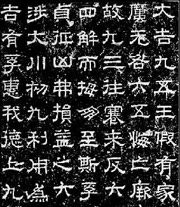 大吉九五王假有家
厲无咎六五悔亡厥
故九三往蹇来反六
四解而拇朋至斯孚
貞征凶弗損益之六
涉大川初九利用為
吉有孚惠我德上九